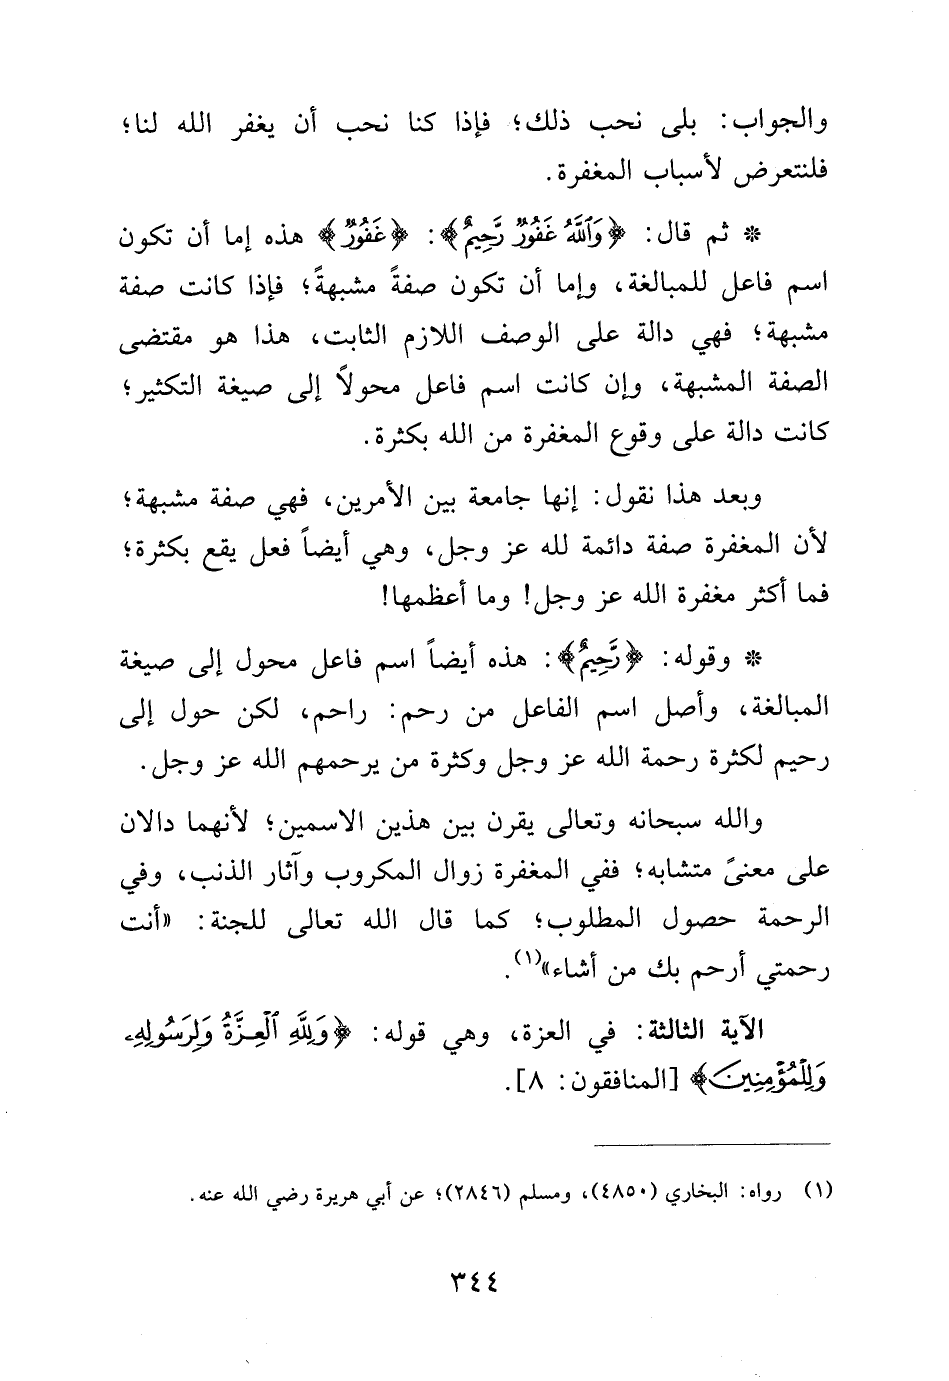 والجواب: بلى نحب ذلك؛ فإذا كنا نحب أن يغفر الله لنا؛
فلنتعرض لأسباب المغفرة.
* ثم قال: ﴿وَٱللَّهُ غَفُورٌ رَّحِيمٌ﴾: ﴿غَفُورٌ﴾ هذه إما أن تكون
اسم فاعل للمبالغة، وإما أن تكون صفةً مشبهةً؛ فإذا كانت صفة
مشبهة؛ فهي دالة على الوصف اللازم الثابت، هذا هو مقتضى
الصفة المشبهة، وإن كانت اسم فاعل محولاً إلى صيغة التكثير؛
كانت دالة على وقوع المغفرة من الله بكثرة.
وبعد هذا نقول: إنها جامعة بين الأمرين، فهي صفة مشبهة؛
لأن المغفرة صفة دائمة لله عز وجل، وهي أيضاً فعل يقع بكثرة؛
فما أكثر مغفرة الله عز وجل! وما أعظمها!
* وقوله: ﴿رَّحِيمٌ﴾: هذه أيضاً اسم فاعل محول إلى صيغة
المبالغة، وأصل اسم الفاعل من رحم: راحم، لكن حول إلى
رحيم لكثرة رحمة الله عز وجل وكثرة من يرحمهم الله عز وجل.
والله سبحانه وتعالى يقرن بين هذين الاسمين؛ لأنهما دالان
على معنىً متشابه؛ ففي المغفرة زوال المكروب وآثار الذنب، وفي
الرحمة حصول المطلوب؛ كما قال الله تعالى للجنة: «أنت
رحمتي أرحم بك من أشاء»(١).
الآية الثالثة: في العزة، وهي قوله: ﴿وَلِلَّهِ ٱلْعِزَّةُ وَلِرَسُولِهِۦ
وَلِلْمُؤْمِنِينَ﴾ [المنافقون: ٨].
(١) رواه: البخاري (٤٨٥٠)، ومسلم (٢٨٤٦)؛ عن أبي هريرة رضي الله عنه.
٣٤٤